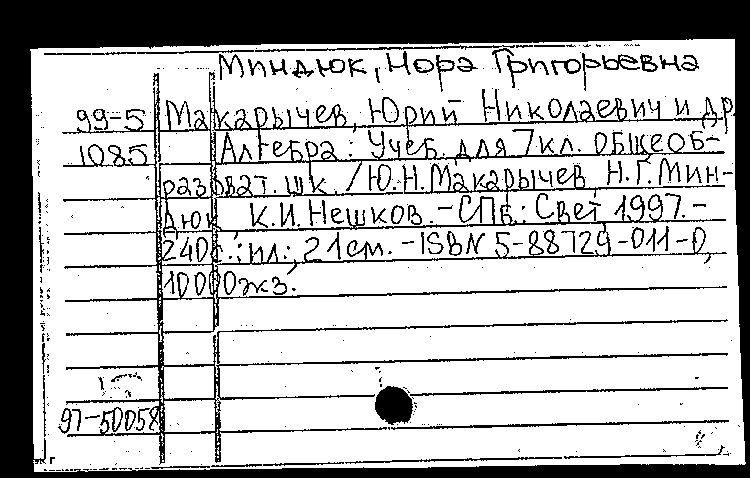 Миндюк, Нора Григорьевна
99-5 Макарычев, Юрий Николаевич и др.
1085 Алгебра: Учеб. для 7 кл. общеоб-
разоват. шк. / Ю.Н. Макарычев, Н.Г. Мин-
дюк, К.И. Нешков. - СПб: Свет, 1997. -
240с.: ил.; 21см. - ISBN 5-88729-011-0,
10000экз.
97-50058